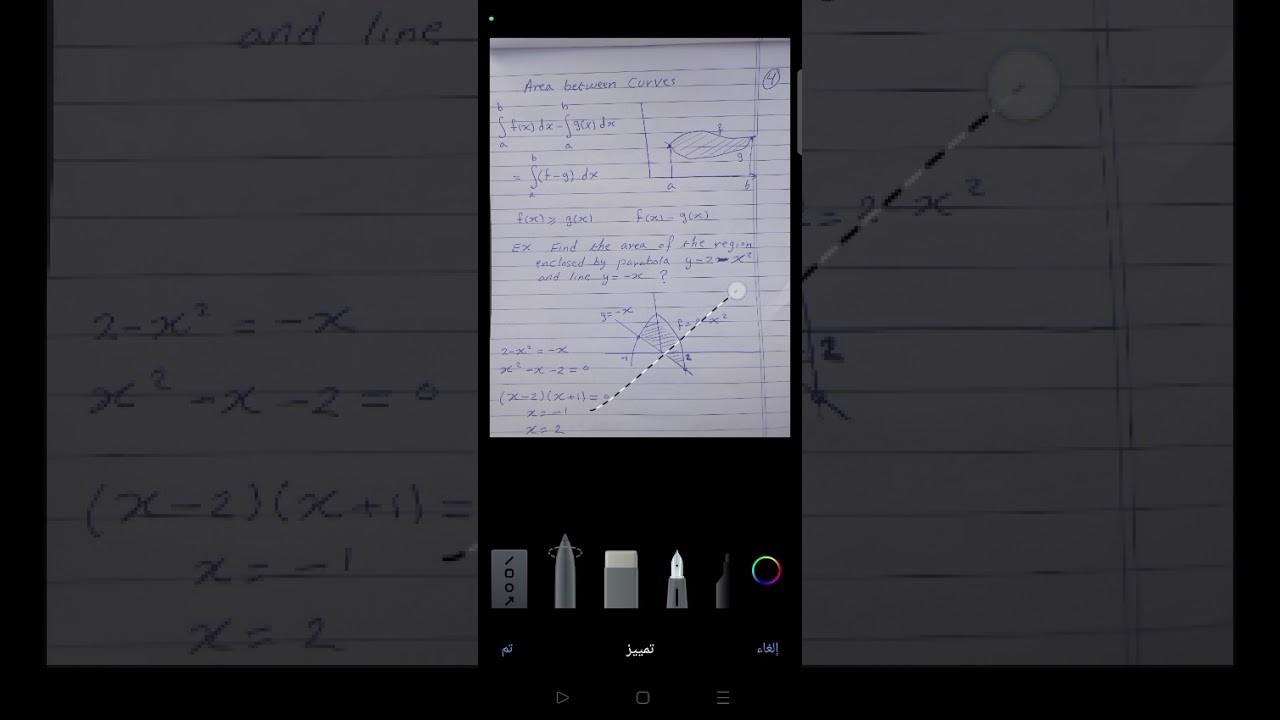 and line
2-x² = -x
x² -x -2 = 0
(x-2)(x+1) =
x = -1
x = 2
Area between Curves
4
b b
∫ f(x) dx - ∫ g(x) dx
a a
b
= ∫ (f-g) dx
a
f
g
a b
f(x) ≥ g(x) f(x) - g(x)
EX Find the area of the region
enclosed by parabola y=2-x²
and line y=-x ?
g=-x
f=2-x²
-1 2
2-x² = -x
x² -x -2 = 0
(x-2)(x+1) = 0
x = -1
x = 2
تم
تمييز
إلغاء
= 2-x²
2